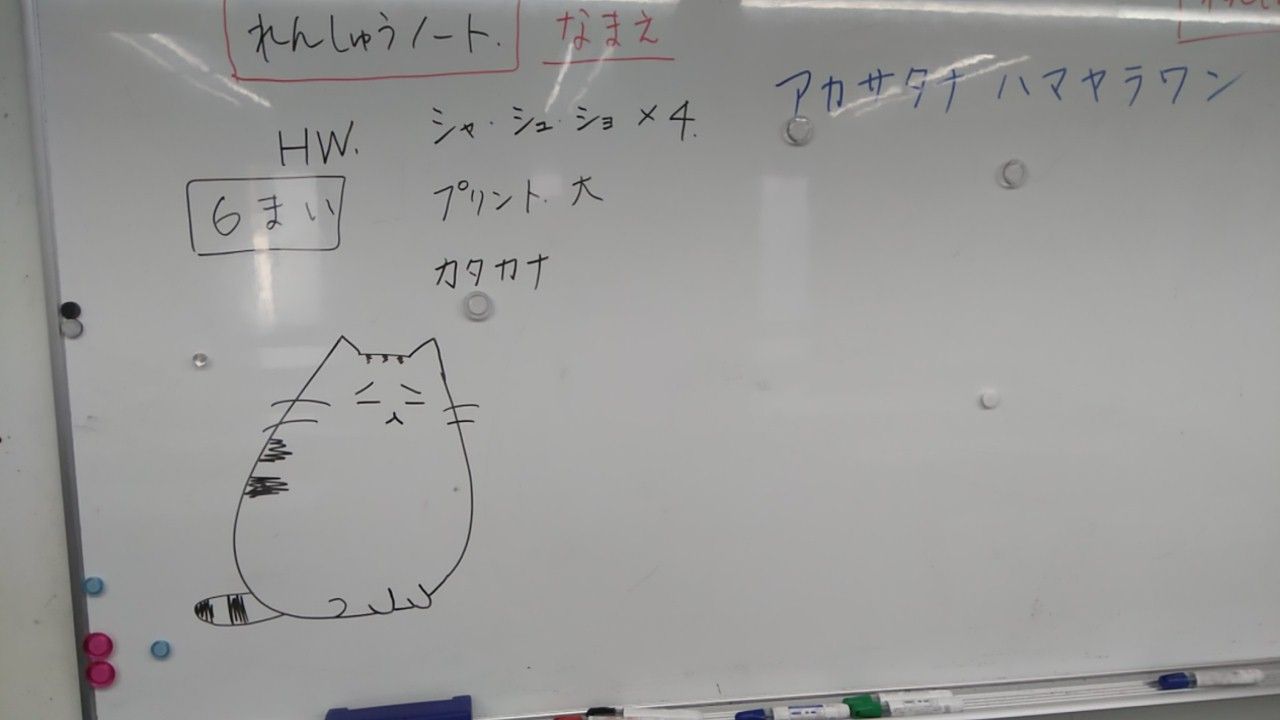 れんしゅうノート.
なまえ
HW.
6まい
シャ・シュ・ショ×4.
プリント. 大
カタカナ
アカサタナハマヤラワン